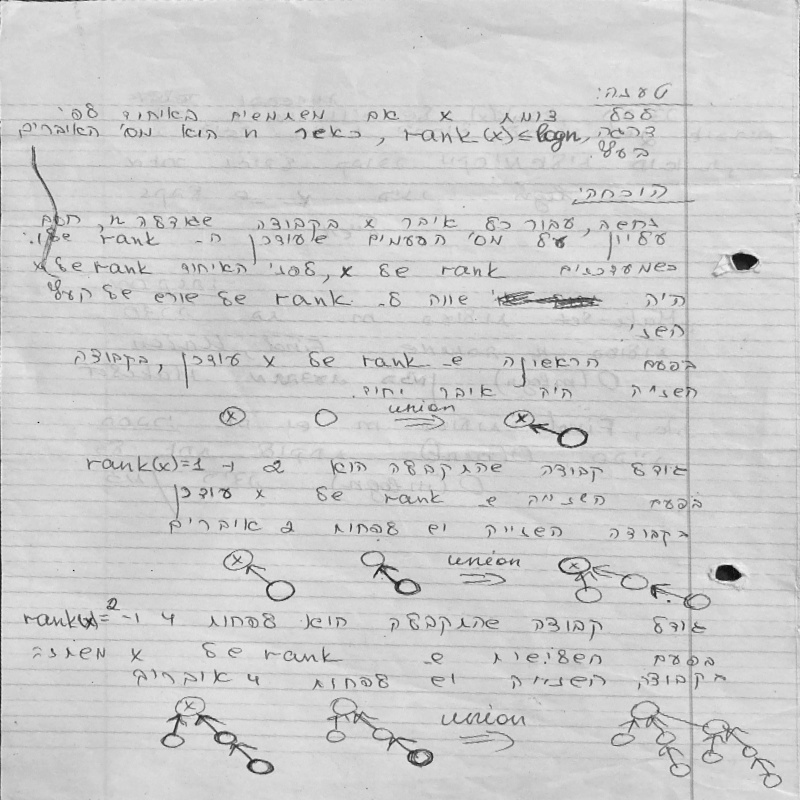 טענה:
לכל צומת x אם משתמשים באיחוד לפי
דרגה, rank(x) ≤ logn, כאשר n הוא מס' האיברים
בעץ.
הוכחה:
נחשב, עבור כל איבר x בקבוצה שגודלה n, חסם
עליון על מס' הפעמים שעודכן ה- rank שלו.
כשמעדכנים rank של x, לפני האיחוד rank של x
היה שווה ל- rank של שורש של העץ
השני.
בפעם הראשונה ש- rank של x עודכן, בקבוצה
השנייה היה איבר יחיד.
x union x
גודל קבוצה שהתקבלה הוא 2 ו- rank(x)=1
בפעם השנייה ש- rank של x עודכן
בקבוצה השנייה יש לפחות 2 איברים
x union x
גודל קבוצה שהתקבלה הוא לפחות 4 ו- rank(x)=2
בפעם השלישית ש- rank של x משתנה
בקבוצה השנייה יש לפחות 4 איברים
x union